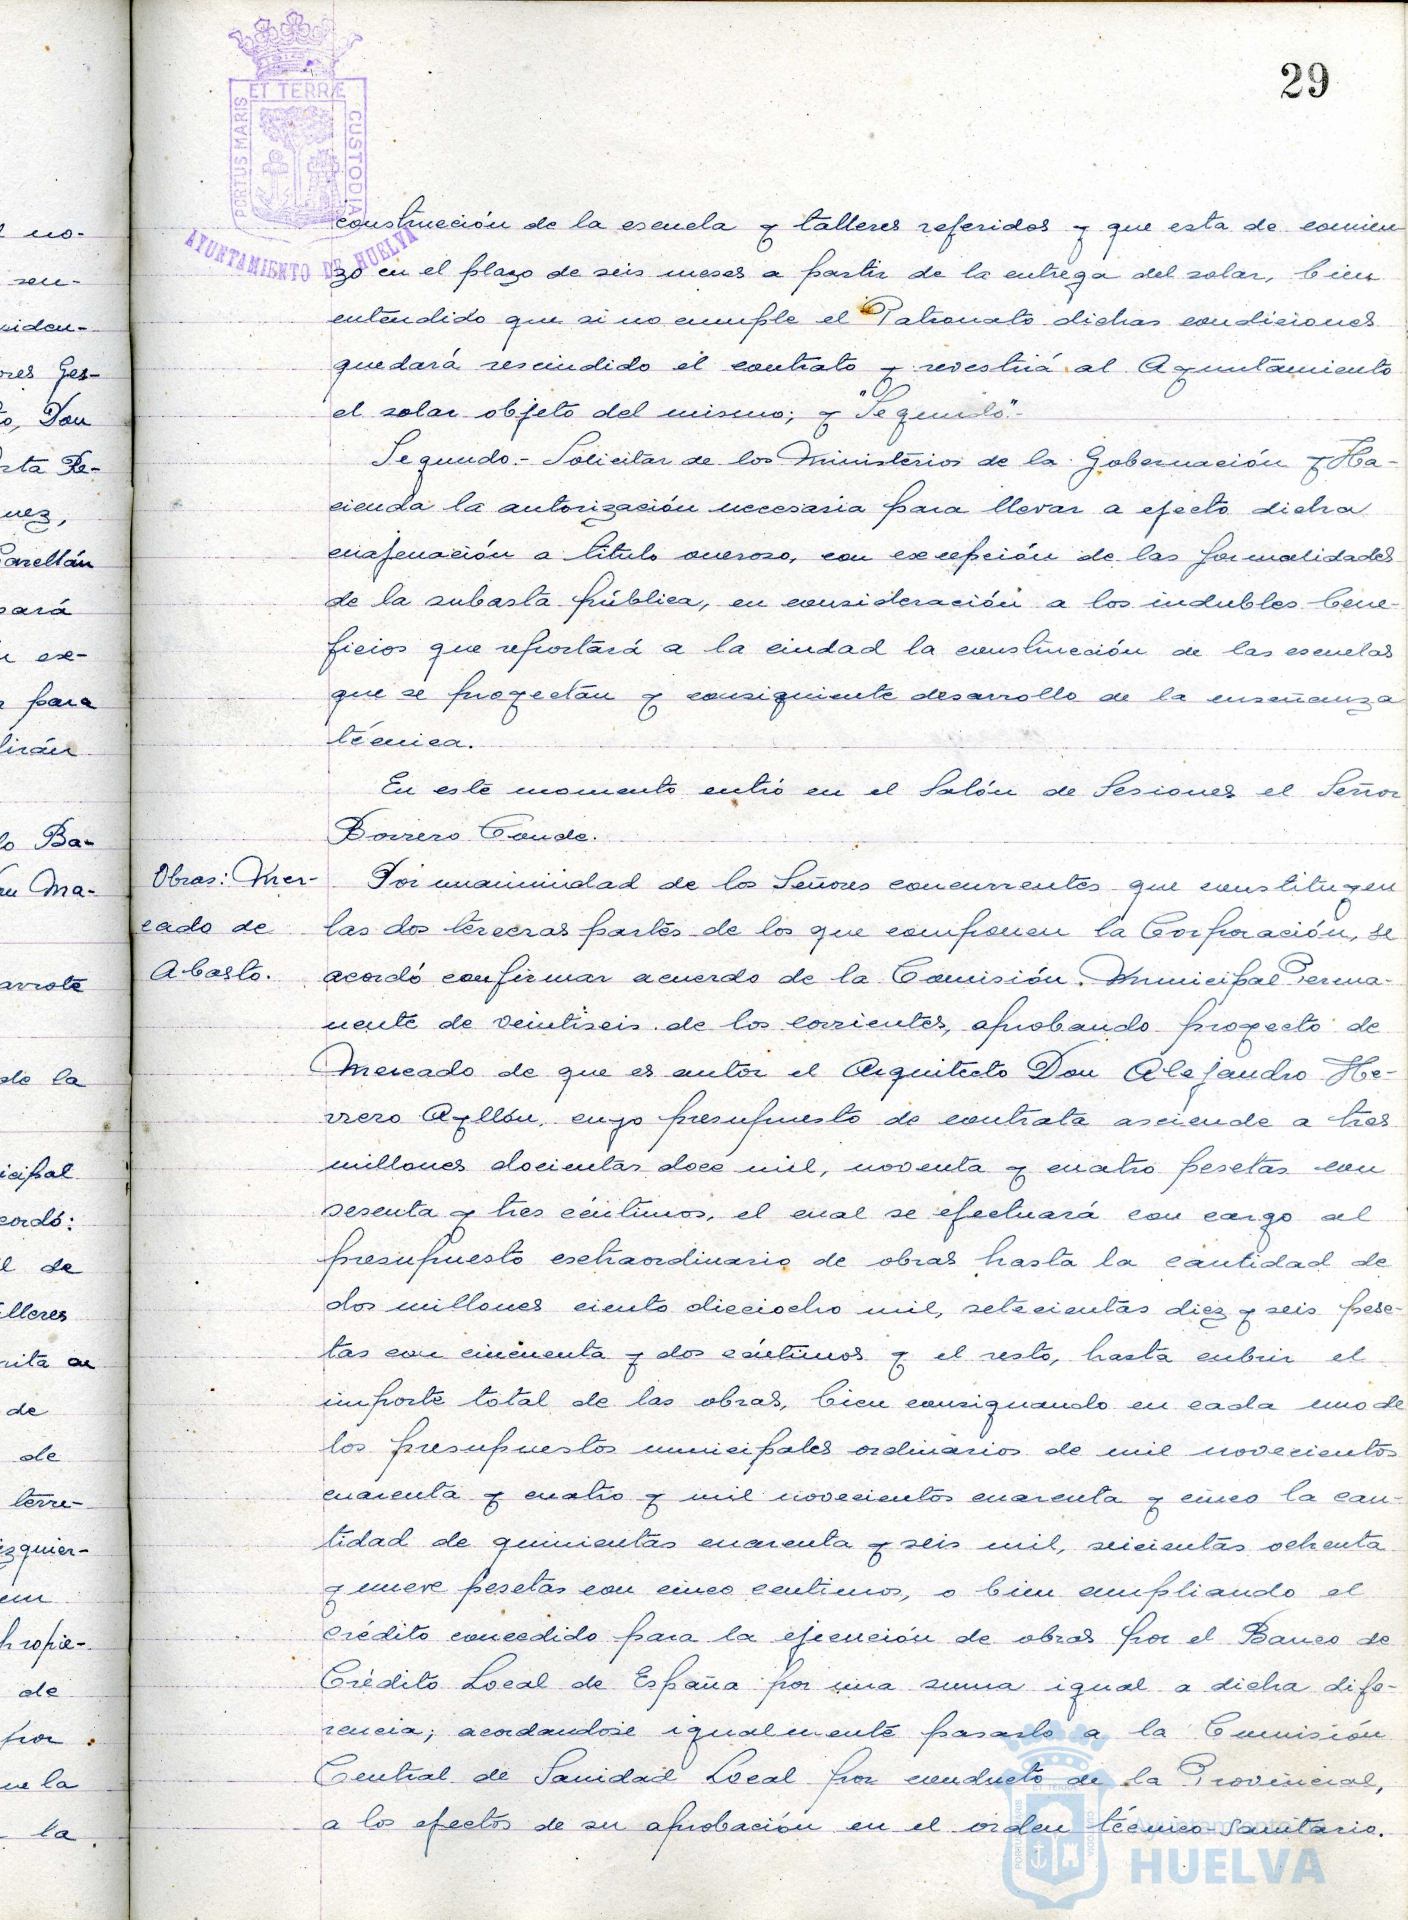 29
ET TERRÆ
PORTUS MARIS
CUSTODIA
AYUNTAMIENTO DE HUELVA
construcción de la escuela y talleres referidos y que esta de comien
zo en el plazo de seis meses a partir de la entrega del solar, bien
entendido que si no cumple el Patronato dichas condiciones
quedará rescindido el contrato y revestirá al Ayuntamiento
el solar objeto del mismo; y "Segundo".-
Segundo.- Solicitar de los Ministerios de la Gobernación y Ha-
cienda la autorización necesaria para llevar a efecto dicha
enajenación a titulo oneroso, con excepción de las formalidades
de la subasta pública, en consideración a los indubles bene-
ficios que reportará a la ciudad la construcción de las escuelas
que se proyectan y consiguiente desarrollo de la enseñanza
técnica.
En este momento entró en el Salón de Sesiones el Señor
Borrero Conde.
Obras: Mer-
cado de
Abasto.
Por unanimidad de los Señores concurrentes que constituyen
las dos terceras partes de los que componen la Corporación, se
acordó confirmar acuerdo de la Comisión Municipal Perma-
nente de veintiseis de los corrientes, aprobando proyecto de
Mercado de que es autor el Arquitecto Don Alejandro He-
rrero Ayllón, cuyo presupuesto de contrata asciende a tres
millones docientas doce mil, noventa y cuatro pesetas con
sesenta y tres céntimos, el cual se efectuará con cargo al
presupuesto extraordinario de obras hasta la cantidad de
dos millones ciento dieciocho mil, setecientas diez y seis pese-
tas con cincuenta y dos céntimos y el resto, hasta cubrir el
importe total de las obras, bien consignando en cada uno de
los presupuestos municipales ordinarios de mil novecientos
cuarenta y cuatro y mil novecientos cuarenta y cinco la can-
tidad de quinientas cuarenta y seis mil, seicientas ochenta
y nueve pesetas con cinco centimos, o bien ampliando el
crédito concedido para la ejecución de obras por el Banco de
Crédito Local de España por una suma igual a dicha dife-
rencia; acordandose igualmente pasarlo a la Comisión
Central de Sanidad Local por conducto de la Provincial,
a los efectos de su aprobación en el orden técnico-Sanitario.
HUELVA